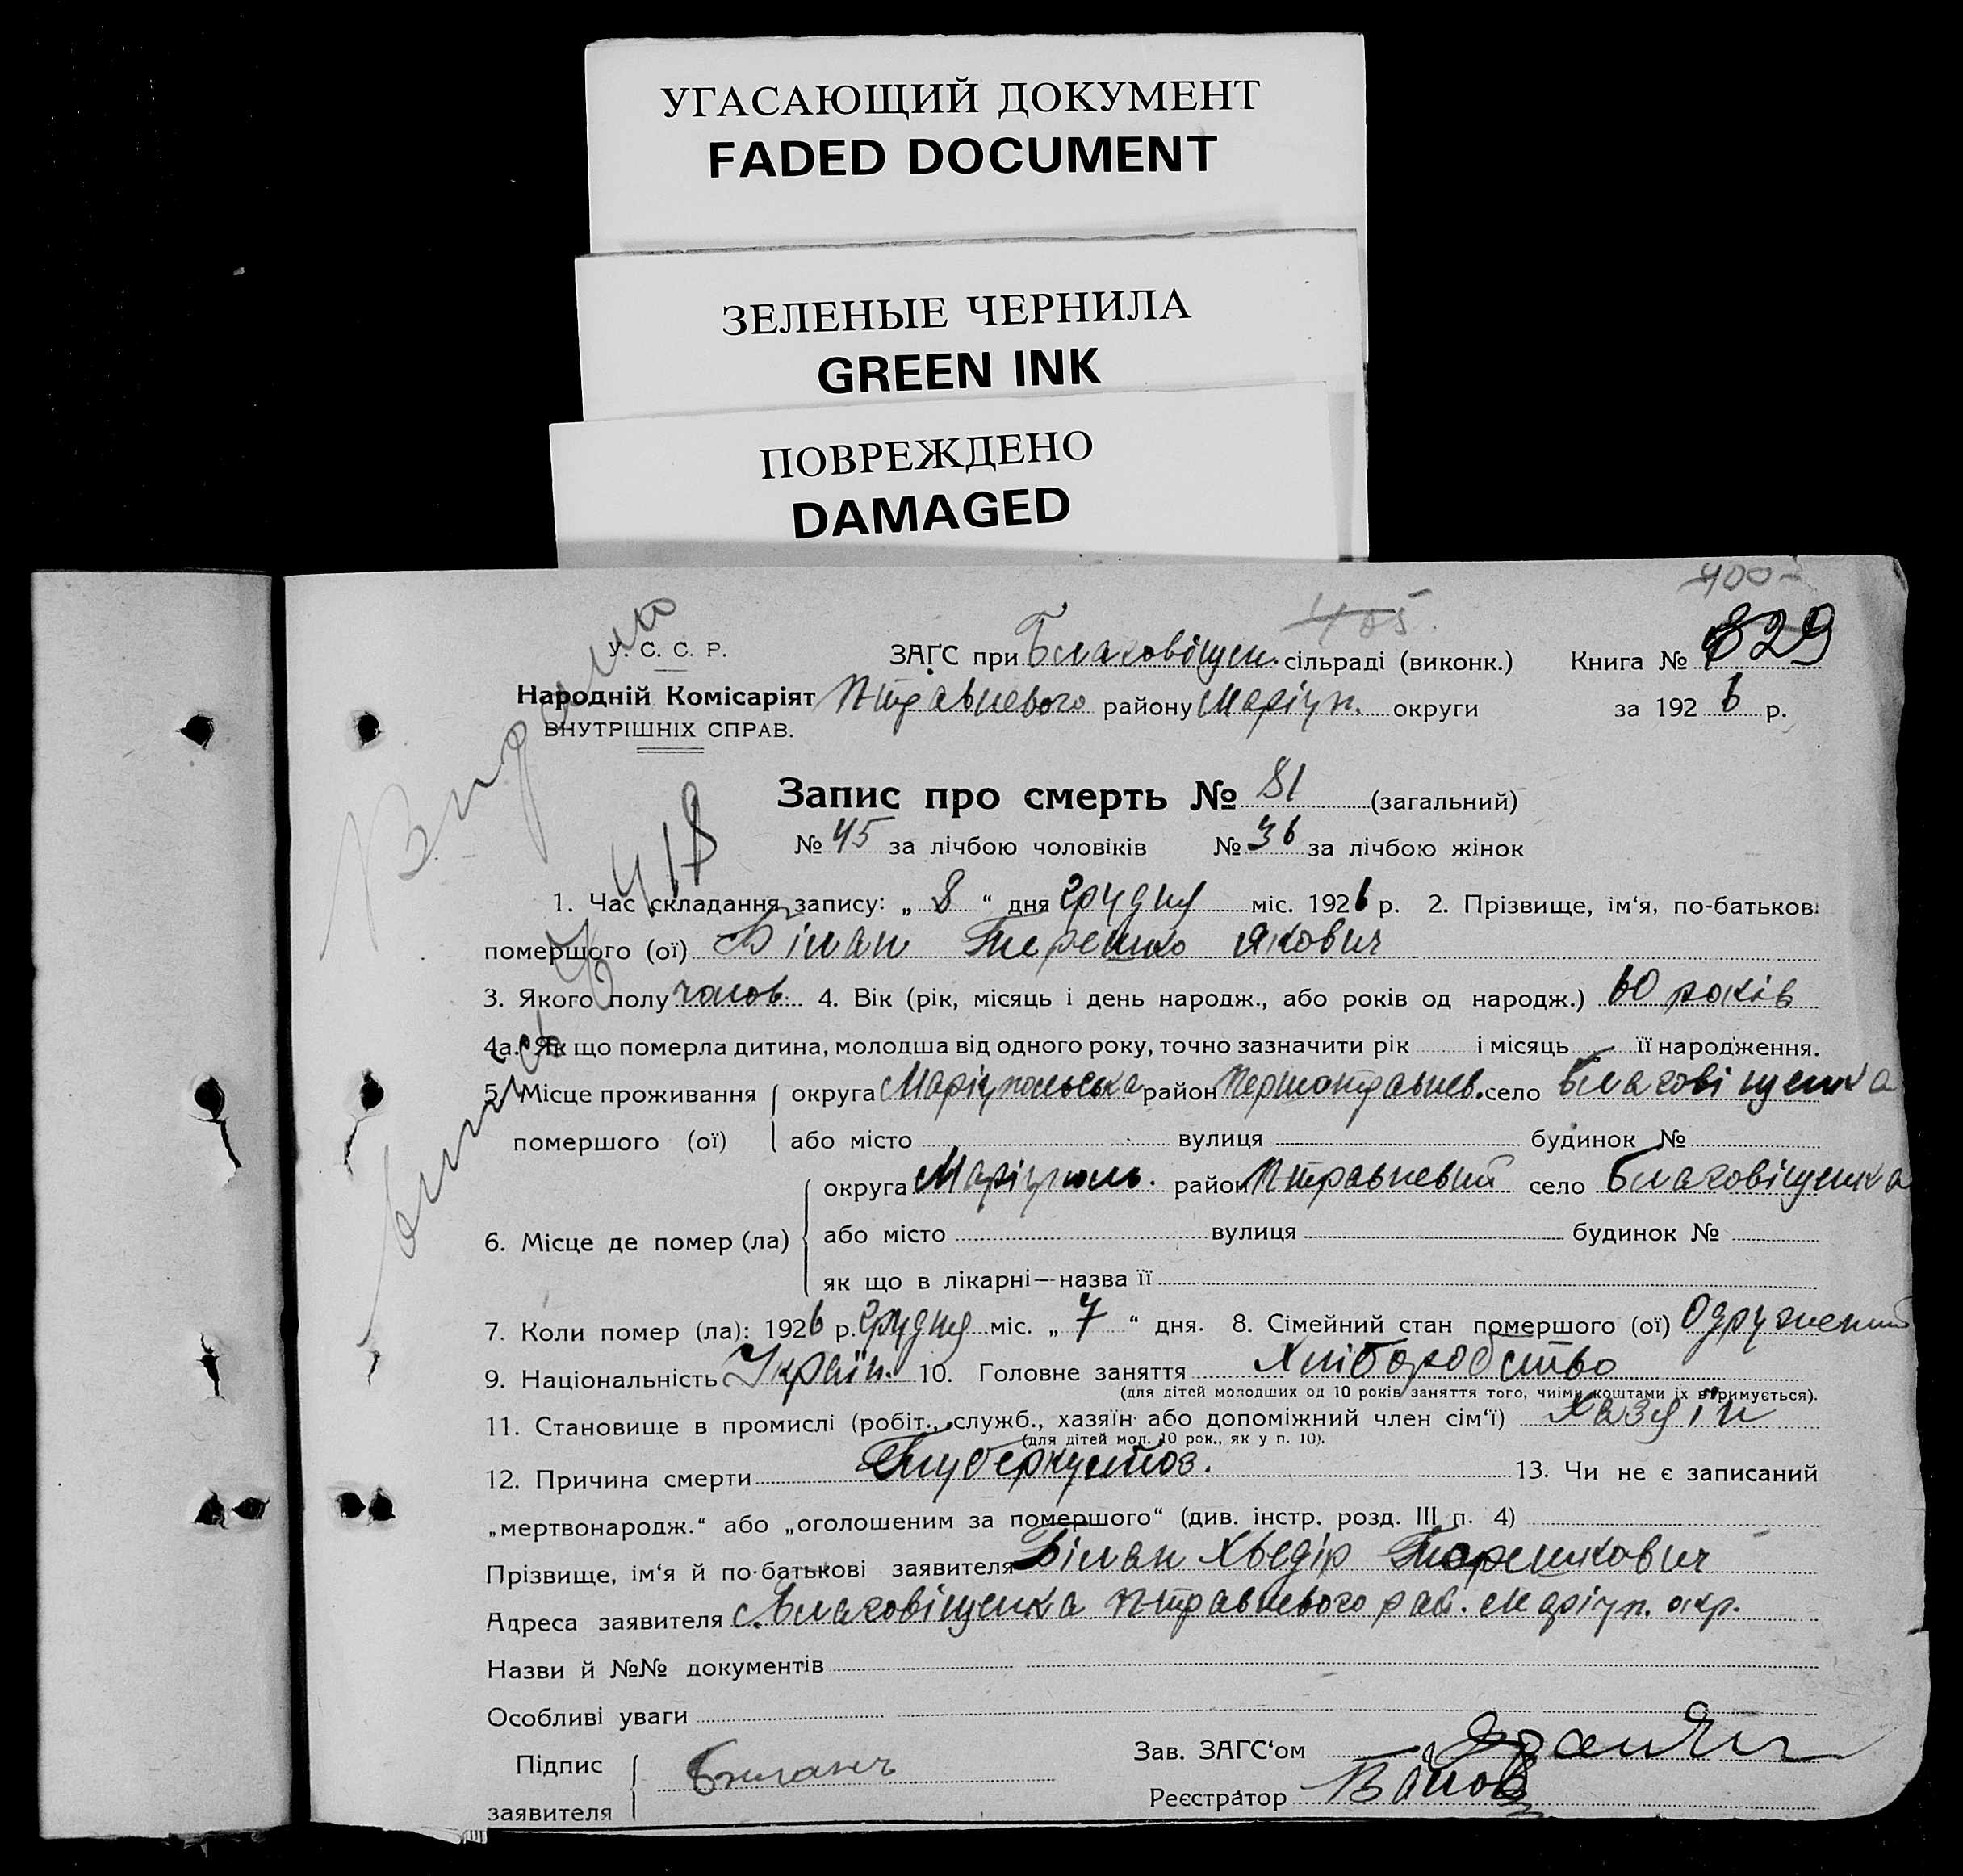 УГАСАЮЩИЙ ДОКУМЕНТ
FADED DOCUMENT
ЗЕЛЕНЫЕ ЧЕРНИЛА
GREEN INK
ПОВРЕЖДЕНО
DAMAGED
400
405
У. С. С. Р.
ЗАГС при Благовіщен. сільраді (виконк.) Книга № 829
Народній Комісаріят
П-травневого району Маріуп. округи за 1926 р.
ВНУТРІШНІХ СПРАВ.
Запис про смерть № 81 (загальний)
№ 45 за лічбою чоловіків № 36 за лічбою жінок
1. Час складання запису: „ 8 “ дня грудня міс. 1926 р. 2. Прізвище, ім‘я, по-батькові
помершого (ої) Білан Терешко Якович
3. Якого полу чолов. 4. Вік (рік, місяць і день народж., або років од народж.) 60 років
4а. Як що померла дитина, молодша від одного року, точно зазначити рік і місяць її народження.
5. Місце проживання округа Маріупольська район Першотравнев. село Благовіщенка
помершого (ої) або місто вулиця будинок №
округа Маріуполь. район П-травневий село Благовіщенка
6. Місце де помер (ла) або місто вулиця будинок №
як що в лікарні—назва її
7. Коли помер (ла): 1926 р. грудня міс. „ 7 “ дня. 8. Сімейний стан помершого (ої) Одружений
9. Національність Україн. 10. Головне заняття Хліборобство
(для дітей молодших од 10 років заняття того, чиїми коштами їх втримується).
11. Становище в промислі (робіт., служб., хазяїн або допоміжний член сім‘ї) Хазяїн
(для дітей мол. 10 рок., як у п. 10).
12. Причина смерти Туберкульоз. 13. Чи не є записаний
„мертвонародж.“ або „оголошеним за помершого“ (див. інстр. розд. III п. 4)
Прізвище, ім‘я й по-батькові заявителя Білан Хведір Терешкович
Адреса заявителя с. Благовіщенка П-травневого рай. Маріуп. окр.
Назви й №№ документів
Особливі уваги
Підпис Биланъ Зав. ЗАГС‘ом
заявителя Реєстратор
418